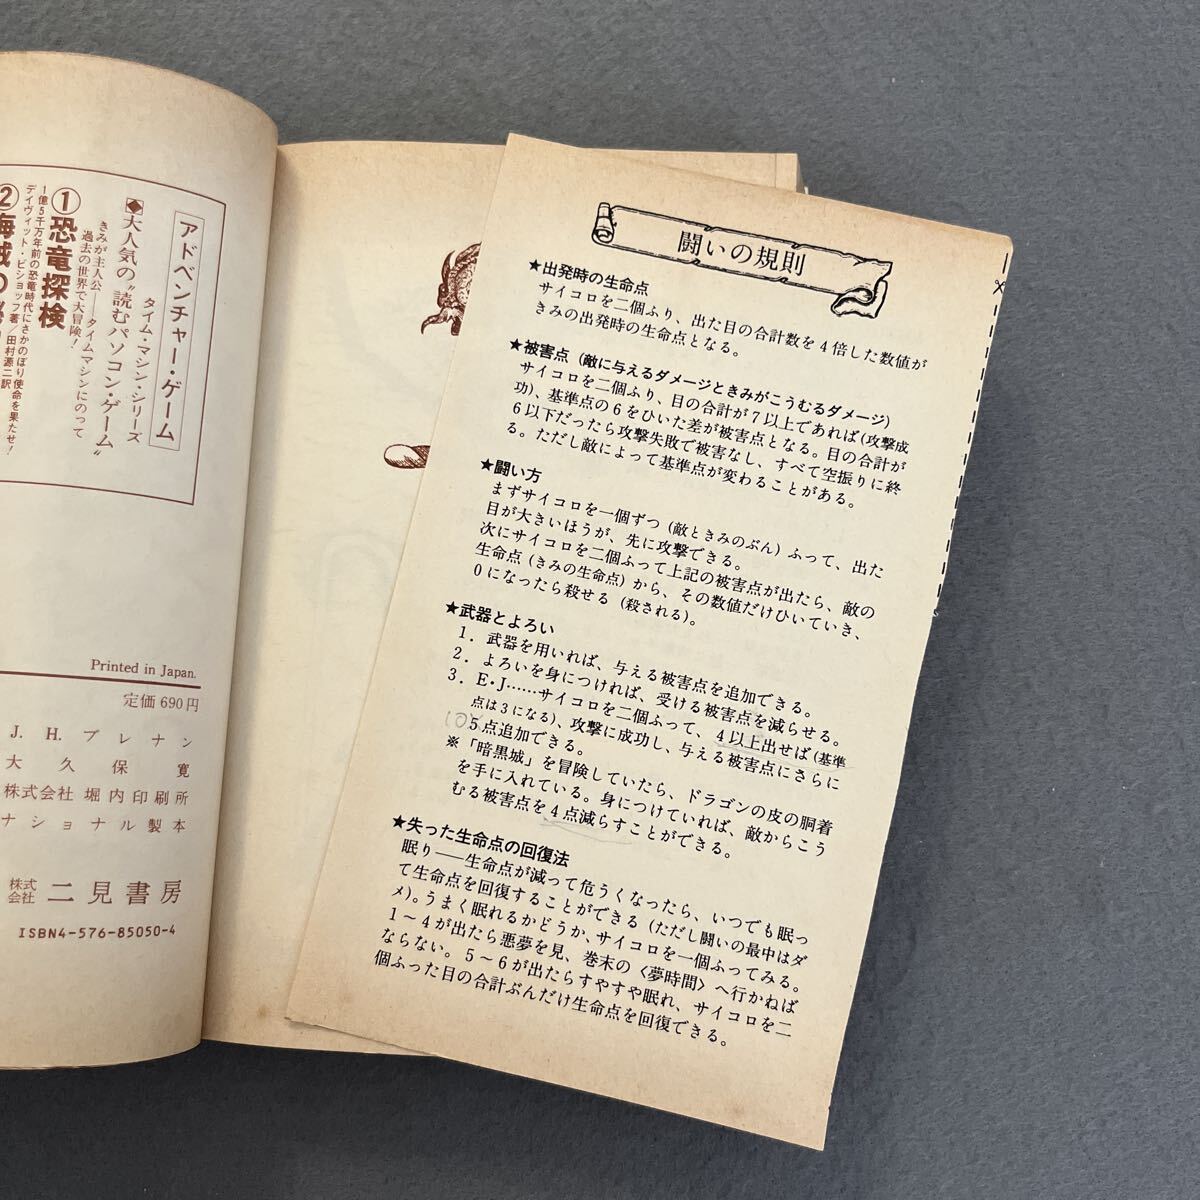 アドベンチャー・ゲーム
◆大人気の〝読むパソコン・ゲーム〟
タイム・マシン・シリーズ
きみが主人公——タイムマシンにのって
過去の世界で大冒険！
①恐竜探検
1億5千万年前の恐竜時代にさかのぼり使命を果たせ！
デイヴィット・ビショッフ著/田村源二訳
②海賊の
Printed in Japan.
定価 690円
J. H. ブレナン
大久保 寛
株式会社 堀内印刷所
ナショナル製本
株式会社 二見書房
ISBN4-576-85050-4
闘いの規則
★出発時の生命点
サイコロを二個ふり、出た目の合計数を4倍した数値が
きみの出発時の生命点となる。
★被害点（敵に与えるダメージときみがこうむるダメージ）
サイコロを二個ふり、目の合計が7以上であれば（攻撃成
功）、基準点の6をひいた差が被害点となる。目の合計が
6以下だったら攻撃失敗で被害なし、すべて空振りに終
る。ただし敵によって基準点が変わることがある。
★闘い方
まずサイコロを一個ずつ（敵ときみのぶん）ふって、出た
目が大きいほうが、先に攻撃できる。
次にサイコロを二個ふって上記の被害点が出たら、敵の
生命点（きみの生命点）から、その数値だけひいていき、
0になったら殺せる（殺される）。
★武器とよろい
1. 武器を用いれば、与える被害点を追加できる。
2. よろいを身につければ、受ける被害点を減らせる。
3. E・J……サイコロを二個ふって、4以上出せば（基準
点は3になる）、攻撃に成功し、与える被害点にさらに
5点追加できる。
※「暗黒城」を冒険していたら、ドラゴンの皮の胴着
を手に入れている。身につけていれば、敵からこう
むる被害点を4点減らすことができる。
★失った生命点の回復法
眠り——生命点が減って危うくなったら、いつでも眠っ
て生命点を回復することができる（ただし闘いの最中はダ
メ）。うまく眠れるかどうか、サイコロを一個ふってみる。
1〜4が出たら悪夢を見、巻末の〈夢時間〉へ行かねば
ならない。5〜6が出たらすやすや眠れ、サイコロを二
個ふった目の合計ぶんだけ生命点を回復できる。